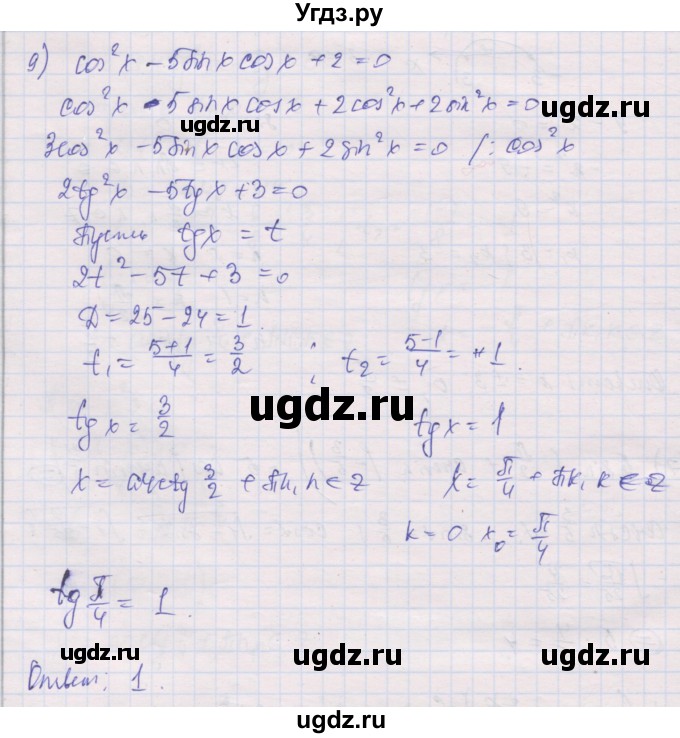 Угдз.ру
9) cos²x - 5sinx cosx + 2 = 0
cos²x - 5sinx cosx + 2cos²x + 2sin²x = 0
ugdz.ru ugdz.ru
3cos²x - 5sinx cosx + 2sin²x = 0 /: cos²x
2tg²x - 5tgx + 3 = 0
Пусть tgx = t
2t² - 5t + 3 = 0
Д = 25 - 24 = 1.
t₁ = (5+1)/4 = 3/2 ; t₂ = (5-1)/4 = 1.
ugdz.ru
tgx = 3/2 tgx = 1
x = arctg 3/2 + πn, n ∈ Z x = π/4 + πk, k ∈ Z
k = 0 x₀ = π/4
ugdz.ru
tg π/4 = 1.
ugdz.ru ugdz.ru
Ответ: 1.
ugdz.ru